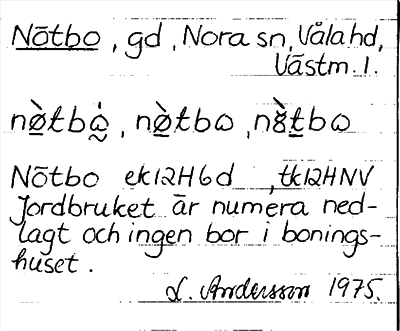 Nötbo, gd, Nora sn, Våla hd,
Västm. l.
nø̀tbὼ, nø̀tbω, n8̀tbω
Nötbo ek12H6d, tk12HNV
Jordbruket är numera ned-
lagt och ingen bor i bonings-
huset.
L. Andersson 1975.